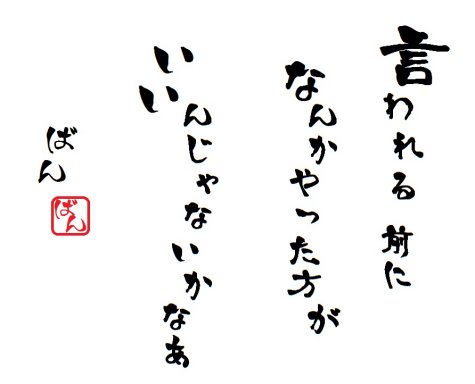 言われる 前に
なんかやった方が
いいんじゃないかなあ
ばん
ばん